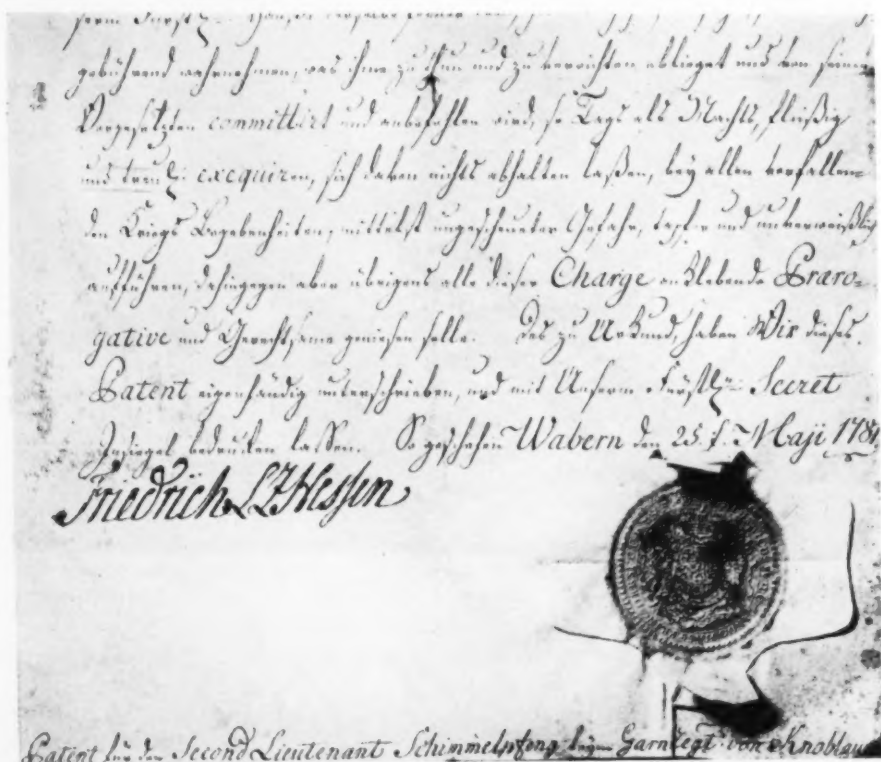 gebührend wahrnehmen, was ihme zu thun und zu verrichten oblieget und von seinen
Vorgesetzten committirt und anbefohlen wird, so Tags als Nachts, fleißig
und treul: exequiren, sich davon nichts abhalten laßen, bey allen vorfallen-
den Kriegs Begebenheiten, mittelst ungescheueter Gefahr, tapfer und unverweißlich
aufführen, dahingegen aber übrigens alle dieser Charge anklebende Praero-
gative und Gerechtsame geniesen solle. Des zu Urkund, haben Wir dieses
Patent eigenhändig unterschrieben, und mit Unserm Fürstl: Secret
Insiegel bedrucken lassen. So geschehen Wabern den 25.t. Maji 1781
Friedrich L Z Hessen
Patent für den Second Lieutenant Schimmelpfeng beym Garn: Regt: von Knoblauch